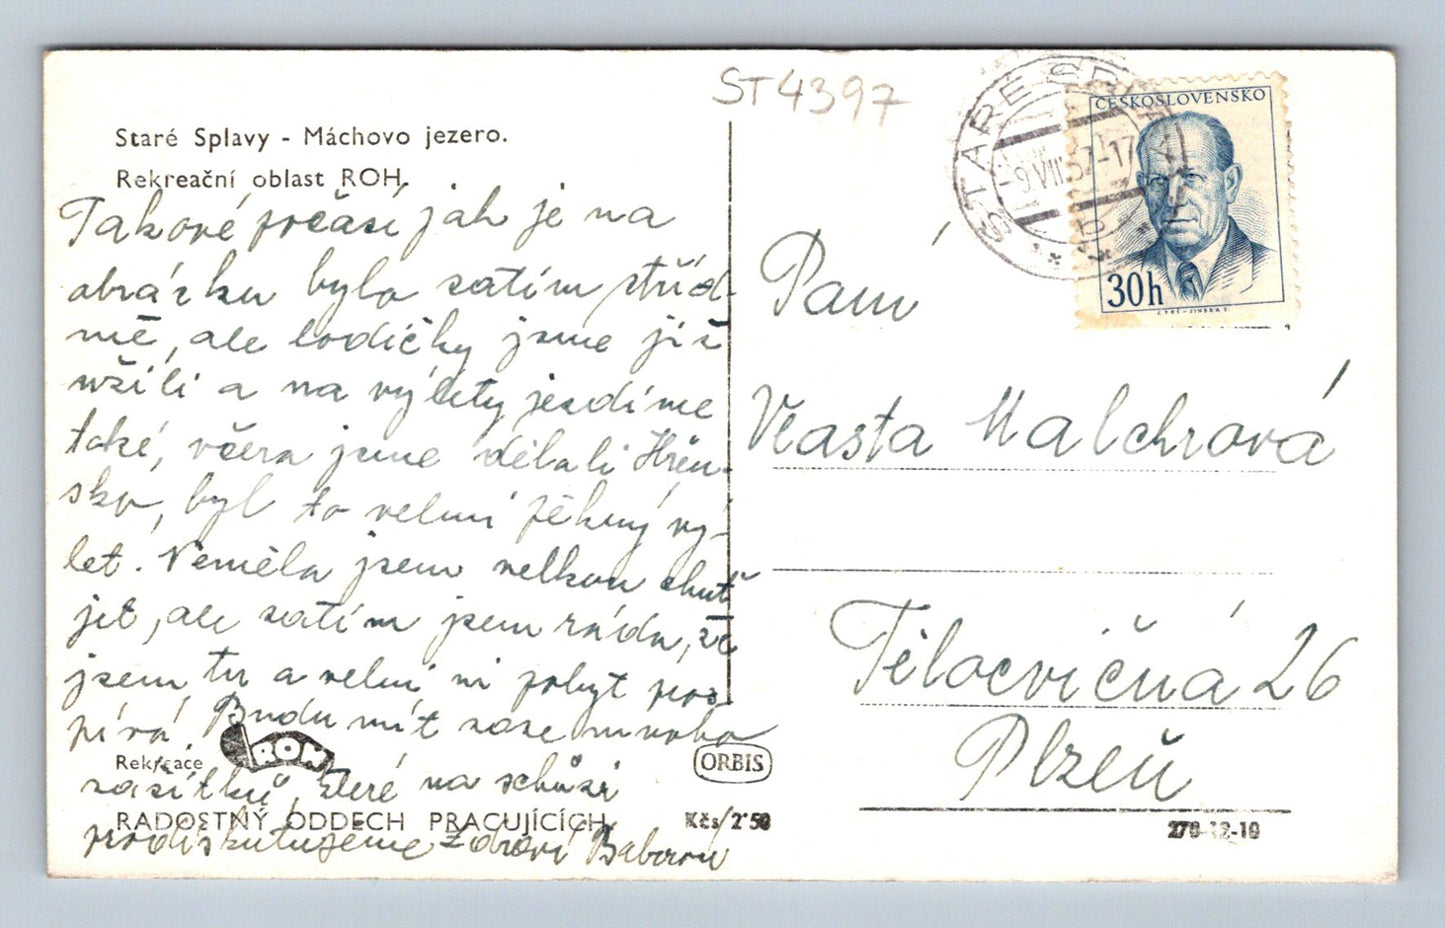 ST4397
Staré Splavy - Máchovo jezero.
Rekreační oblast ROH.
Takové počasí jak je na
obrázku bylo zatím stříd-
mě, ale lodičky jsme již
užili a na výlety jezdíme
také, včera jsme dělali Hřen-
sko, byl to velmi pěkný vý-
let. Neměla jsem velkou chuť
jet, ale zatím jsem ráda, že
jsem tu a velmi mi pobyt pros-
pívá. Budu mít zase mnoho
zážitků, které na schůzi
prodiskutujeme Zdraví
Rekreace
ROH
RADOSTNÝ ODDECH PRACUJÍCÍCH
ORBIS
Kčs 2'50
STARÉ SPLAVY
-9.VIII.57-17
ČESKOSLOVENSKO
30h
Paní
Vlasta Malchrová
Tělocvičná 26
Plzeň